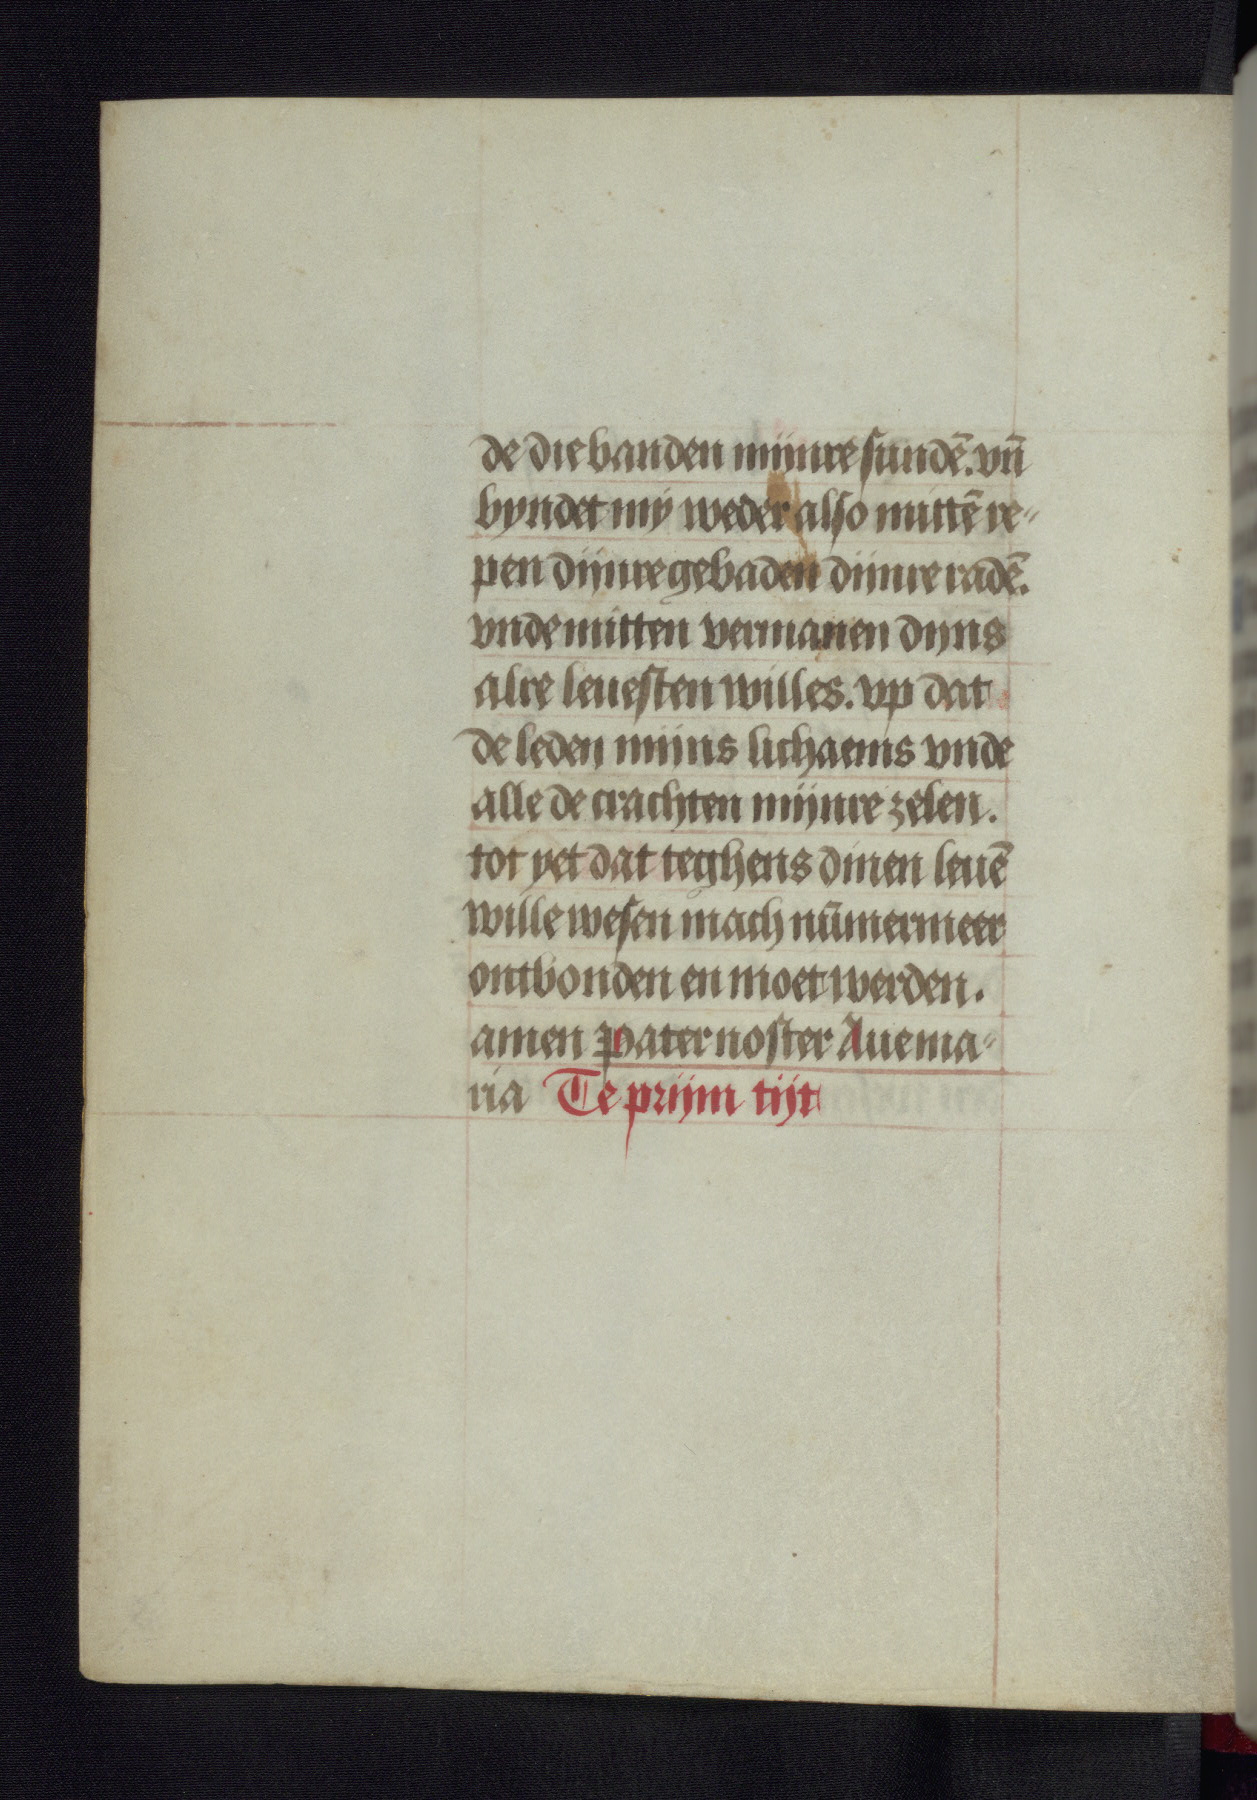 de die banden mijnre sundē. vn̄
byndet my weder also mittē re-
pen dijnre gebaden dijnre radē.
vnde mitten vermanen dyns
alre leuesten willes. vp dat
de leden mijns lichaems vnde
alle de crachten mijnre zelen.
tot yet dat teghens dinen leuē
wille wesen mach nūmermeer
ontbonden en moet werden.
amen Pater noster Aue ma-
ria Te prijm tijt